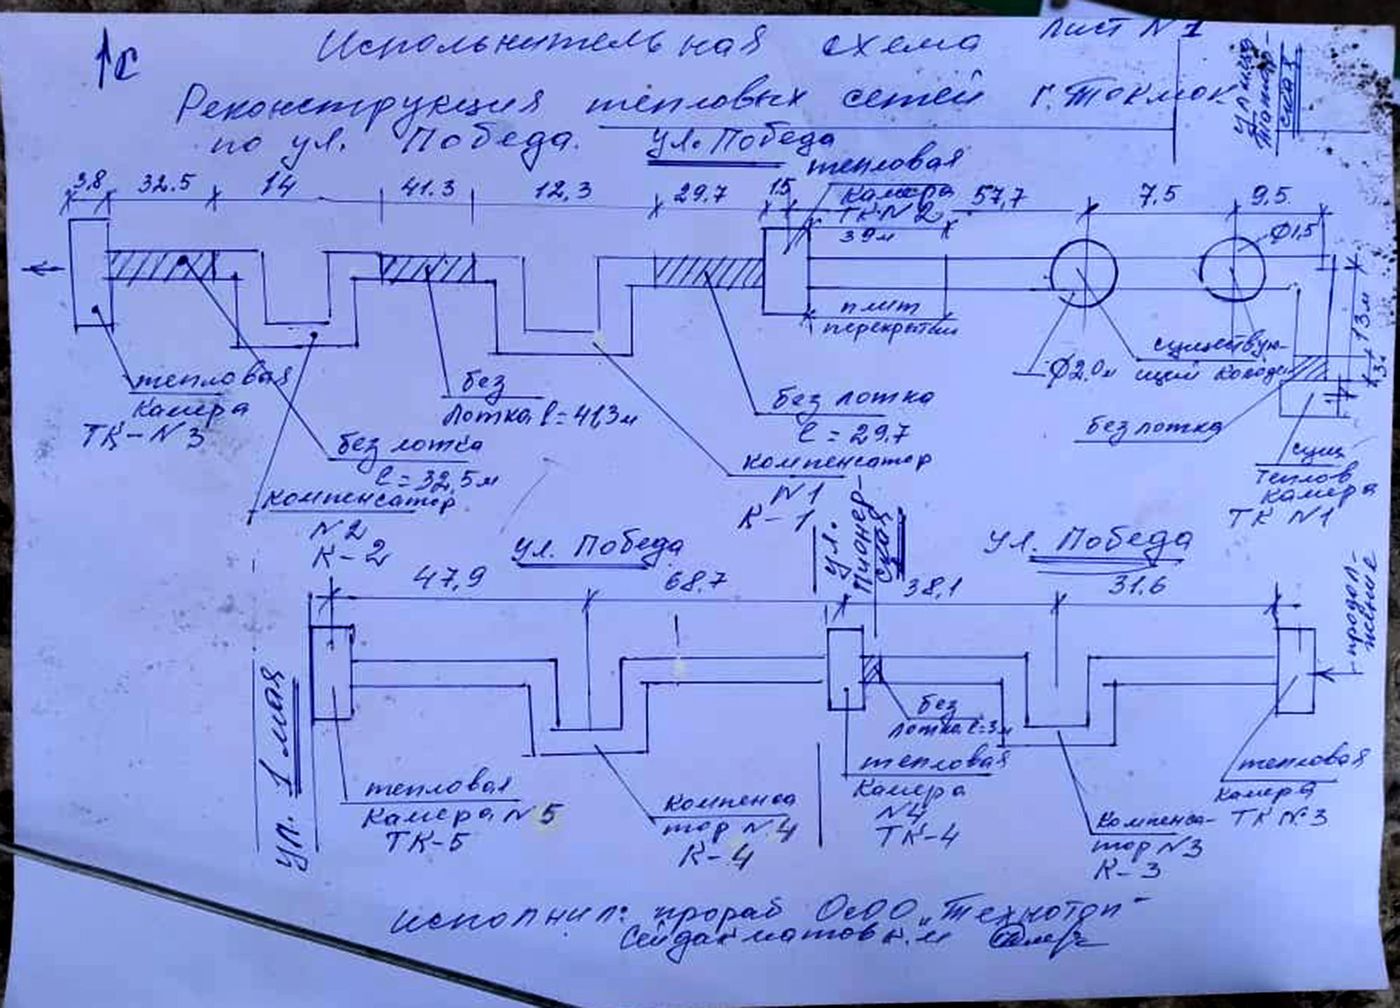 ↑С
Исполнительная схема Лист N1
Реконструкция тепловых сетей г. Токмок
по ул. Победа.
ул. Победа
улица
3,8 32.5 14 41.3 12,3 29.7 1.5 57,7 7.5 9.5
тепловая
камера
ТК-N2
39м
плит
перекрытия
Ф1,5
Ф2.0м
существую-
щий колодец
13м
3м
тепловая
камера
ТК-N3
без лотка
l=32,5м
компенсатор
N2
К-2
без
лотка l=41,3м
без лотка
l=29.7
компенсатор
N1
К-1
без лотка
сущ
теплов
камера
ТК N1
ул. Победа
ул.
Пионер-
ская
ул. Победа
47,9 68.7 38,1 31.6
-продол-
жение
ул. 1 мая
тепловая
камера N5
ТК-5
компенса
тор N4
К-4
без
лотка l=3м
тепловая
камера
N4
ТК-4
компенса-
тор N3
К-3
тепловая
камера
ТК N3
исполнил: прораб ОсОО „Технотоп"
Сейдакматов к.м